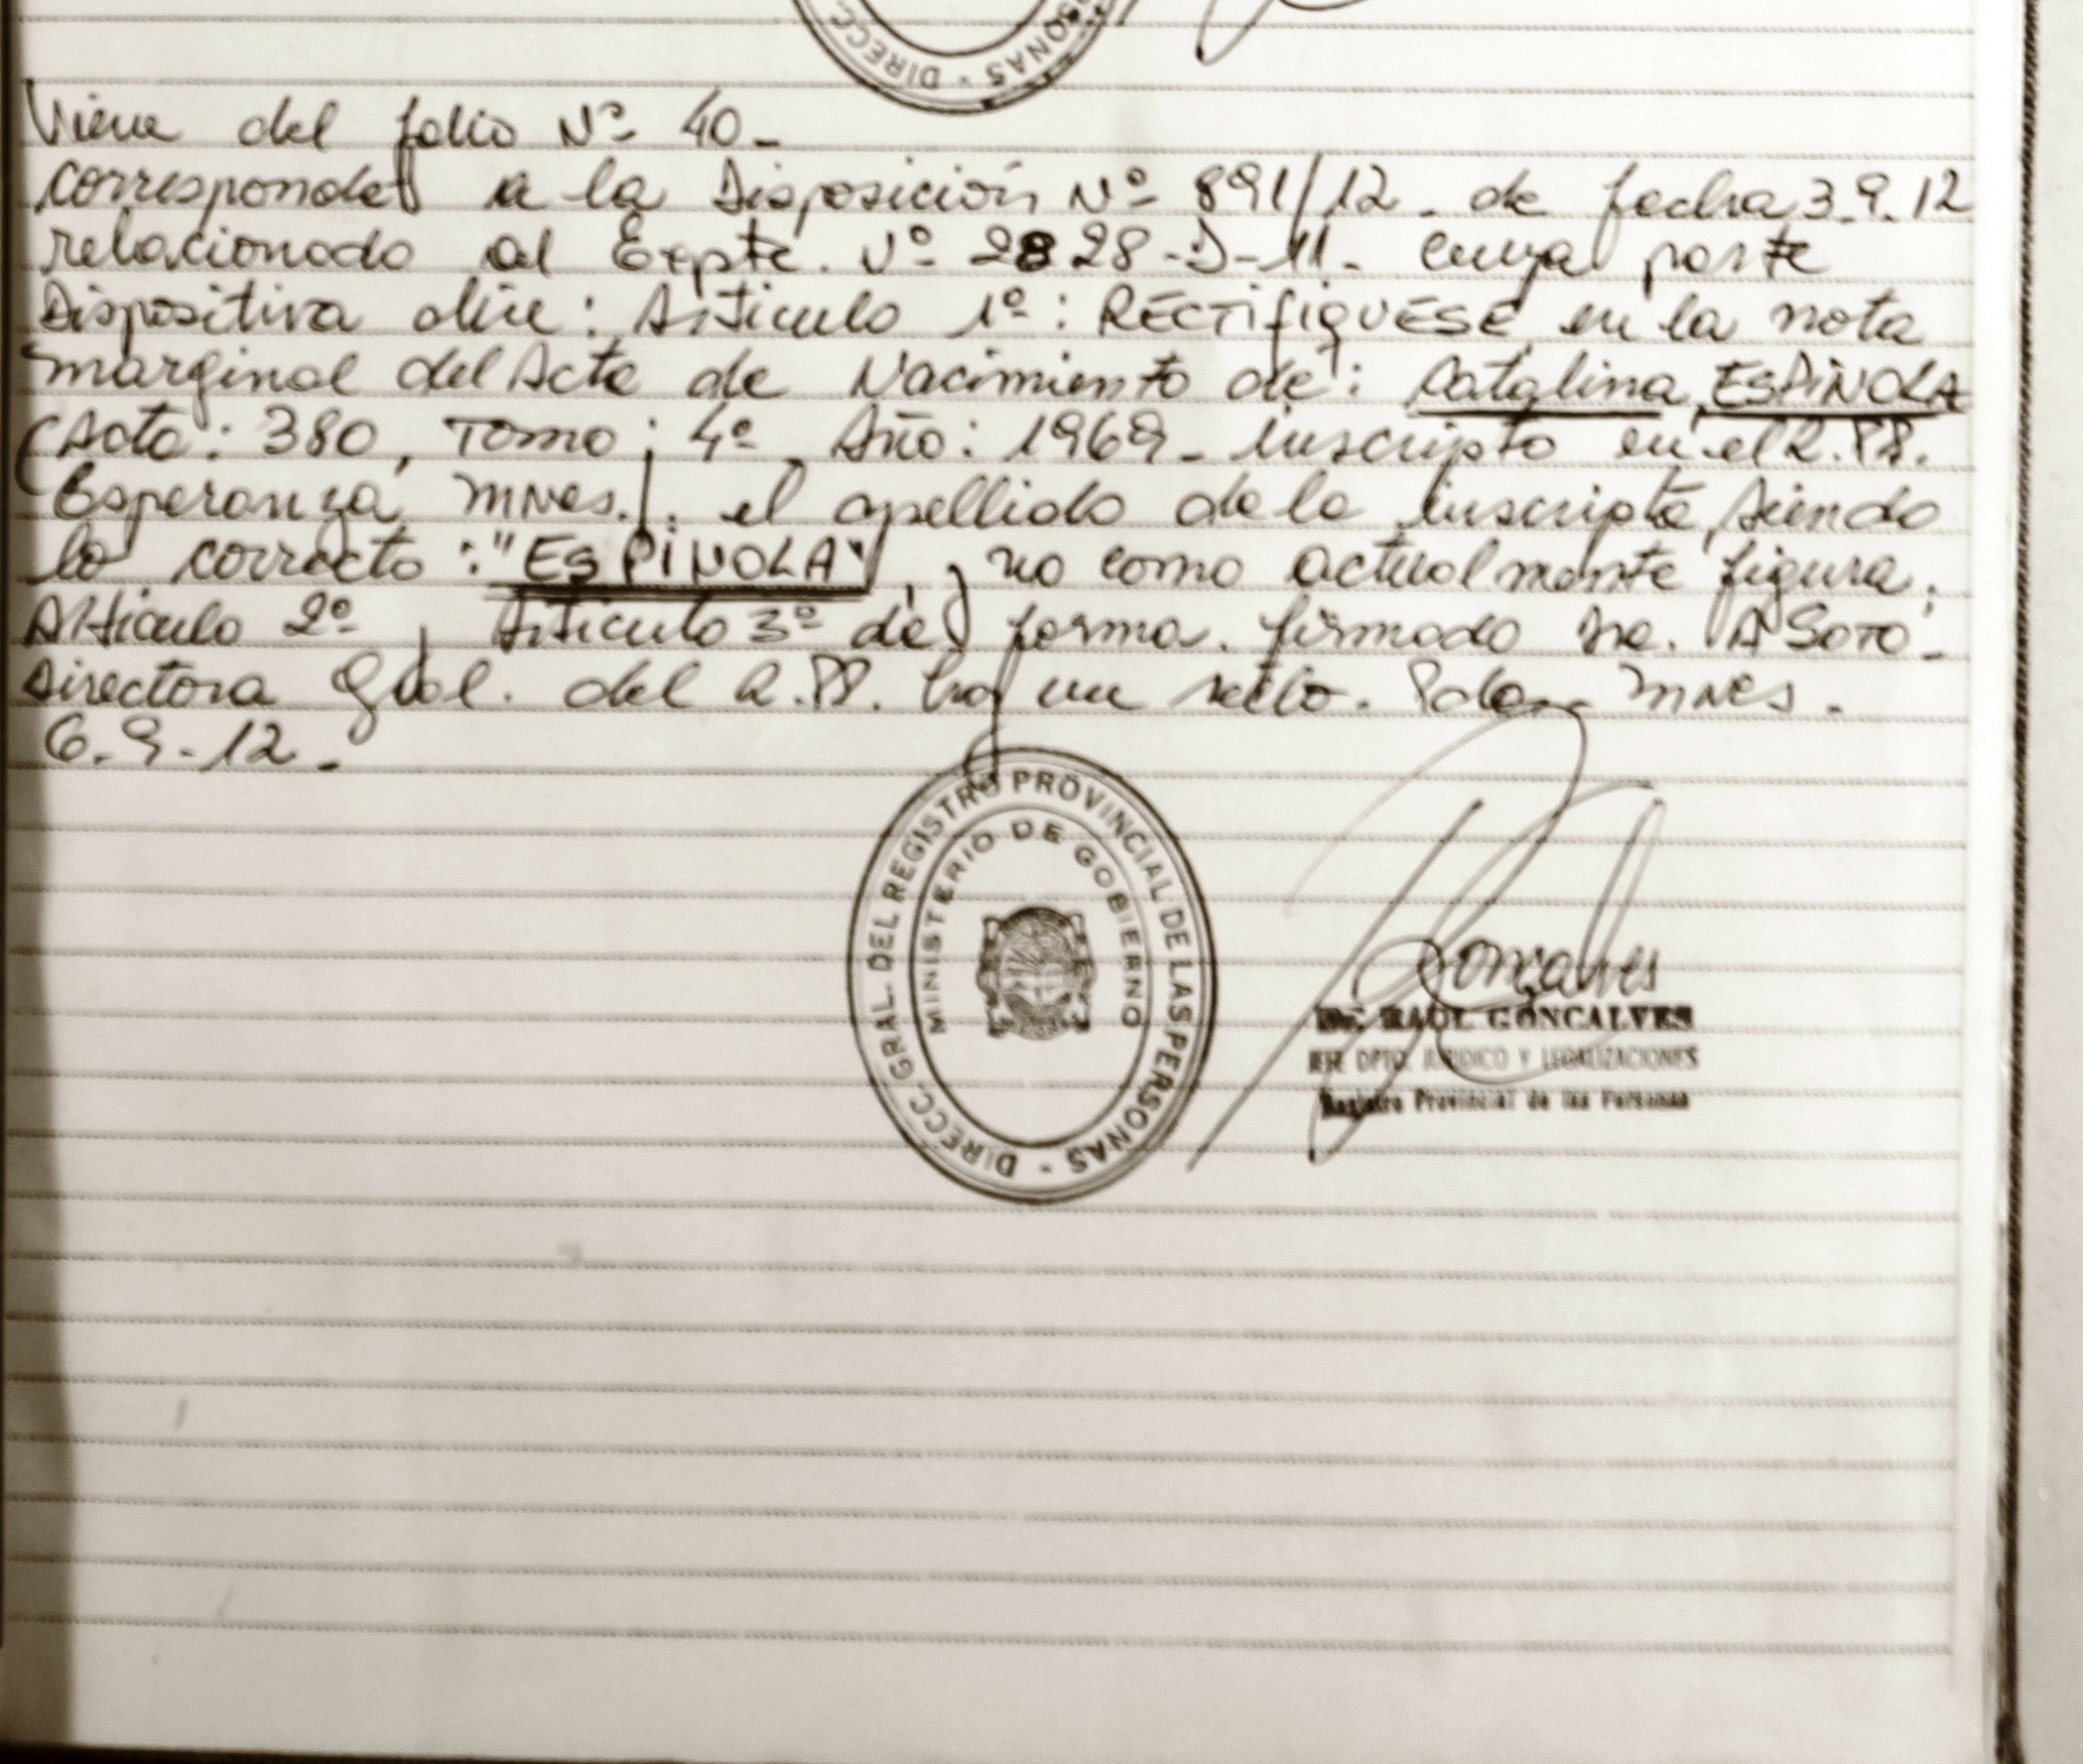 DIRECC. SONAS -
Viene del folio Nº 40-
corresponde a la Disposición Nº 891/12 - de fecha 3.9.12
relacionado al Expte. Nº 2828-D-11. cuya parte
Dispositiva dice: Artículo 1º: RECTIFIQUESE en la nota
marginal del Acta de Nacimiento de: Catalina ESPINOLA
(Acta: 380, Tomo: 4º Año: 1969 - inscripto en el R.PP.
Esperanza Mnes.) el apellido de la inscripta, siendo
lo correcto: "ESPINOLA", no como actualmente figura.
Artículo 2º, Artículo 3º de forma. firmado A Soto-
Directora Gral. del R.PP. hay un sello. Pdas Mnes.
6.9-12.-
DIRECC. GRAL. DEL REGISTRO PROVINCIAL DE LAS PERSONAS -
MINISTERIO DE GOBIERNO
Goncalves
Dr. RAUL GONCALVES
JEFE DPTO. JURIDICO Y LEGALIZACIONES
Registro Provincial de las Personas